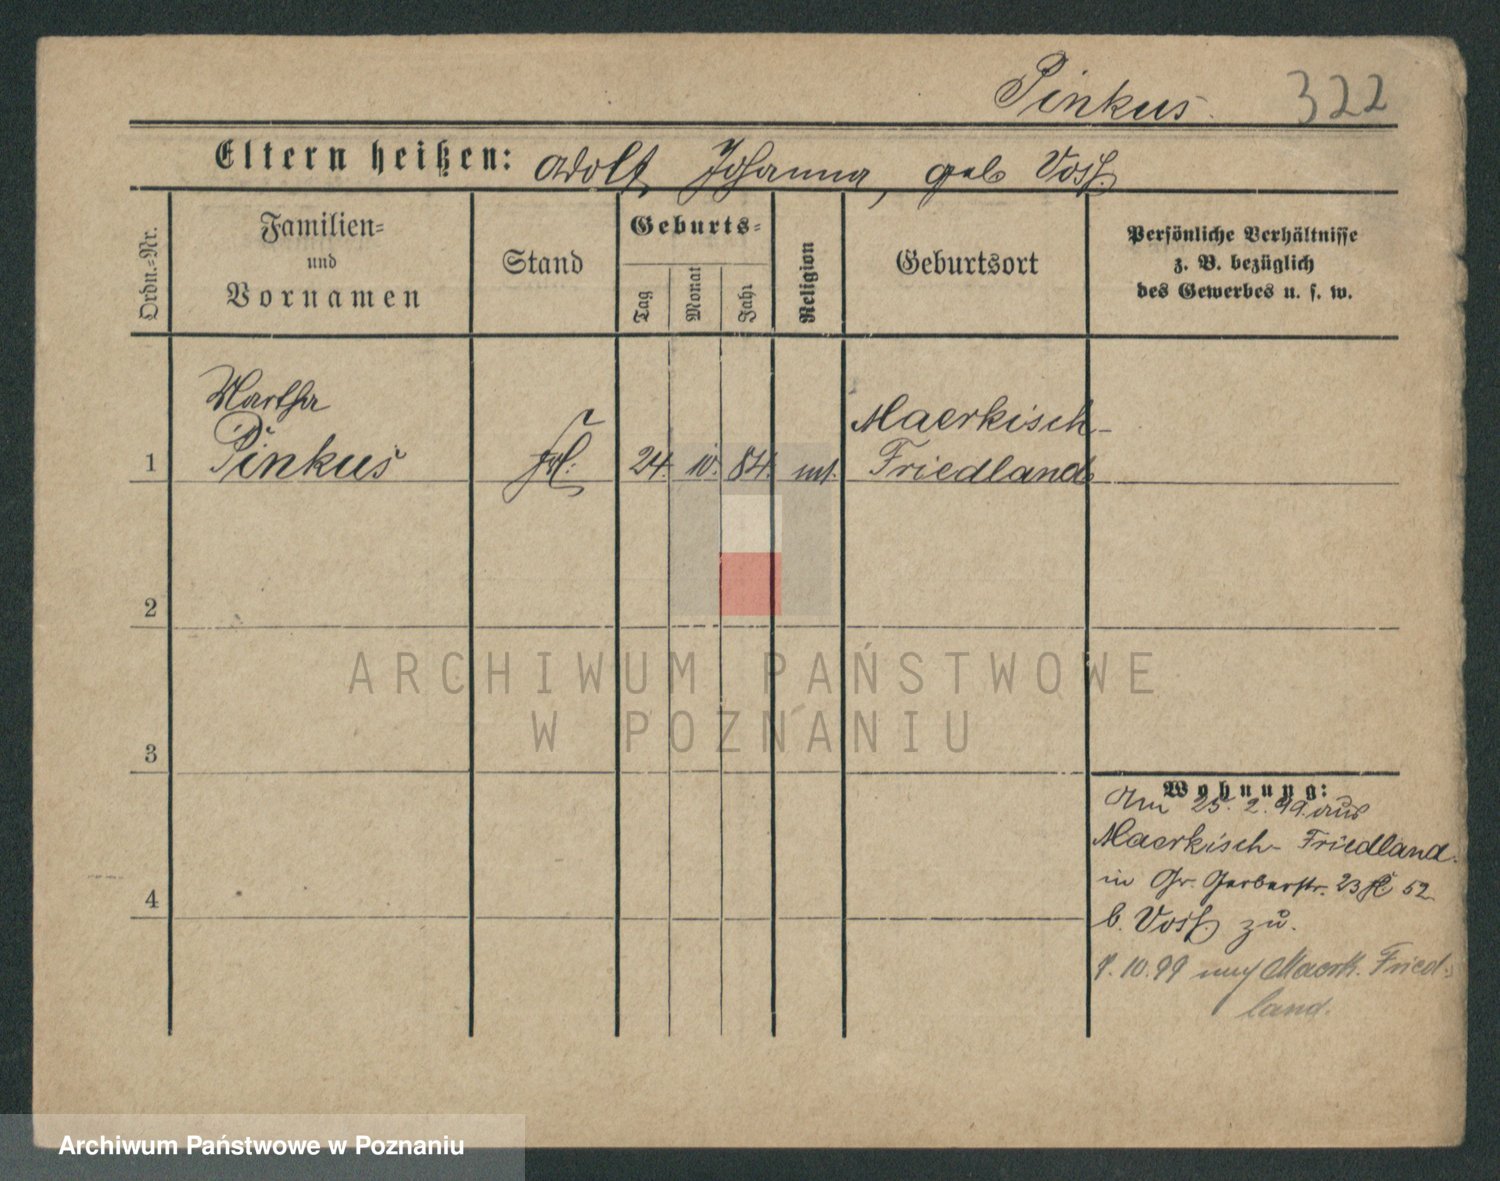 Pinkus. 322
Eltern heißen: Adolf, Johanna, geb Voss.
Ordn.-Nr.
Familien-
und
Vornamen
Stand
Geburts-
Tag
Monat
Jahr
Religion
Geburtsort
Persönliche Verhältnisse
z. B. bezüglich
des Gewerbes u. s. w.
Martha
1 Pinkus
24. 10. 84.
Maerkisch-
Friedland
2
3
4
Wohnung:
Am 25. 2. 99. aus
Maerkisch-Friedland
in Gr. Gerberstr. 23 52
b. Voss zu.
10.99 Maerk. Fried-
land.
ARCHIWUM PAŃSTWOWE
W POZNANIU
Archiwum Państwowe w Poznaniu